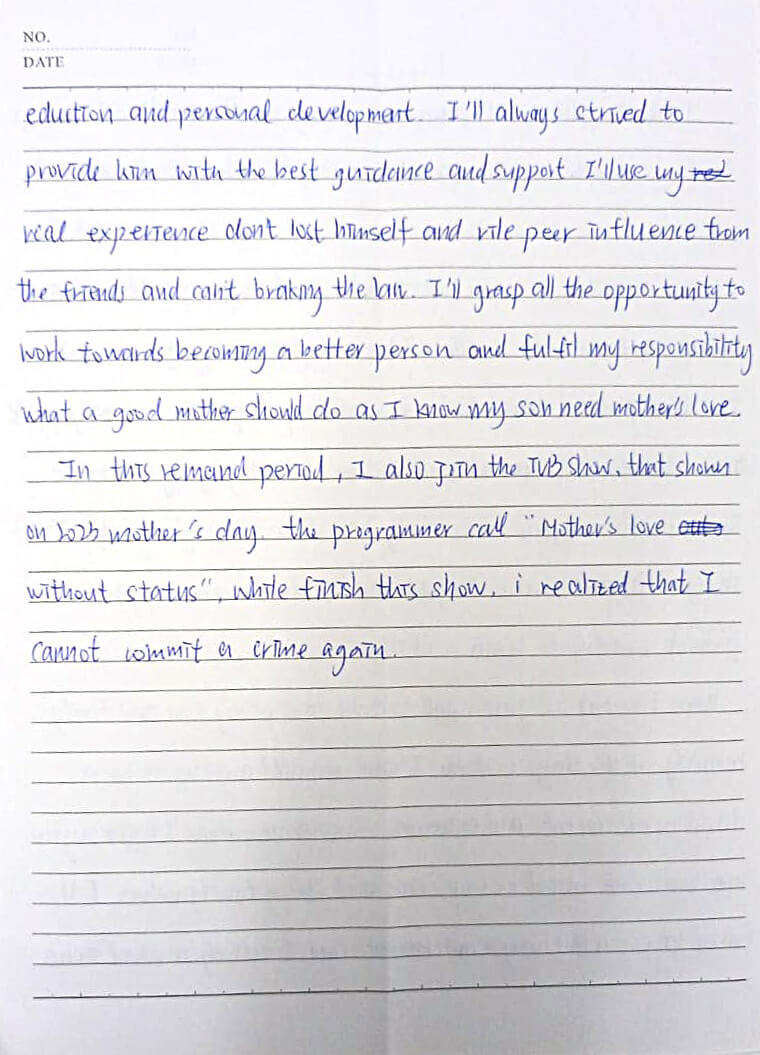 NO.
DATE
eduction and personal development. I'll always strived to
provide him with the best guidance and support I'll use my
real experience don't lost himself and vile peer influence from
the friends and can't braking the law. I'll grasp all the opportunity to
work towards becoming a better person and fulfil my responsibility
what a good mother should do as I know my son need mother's love.
In this remand period, I also join the TVB show, that shown
on 2025 mother's day. the programmer call "Mother's love
without status", While finish this show, i realized that I
cannot commit a crime again.